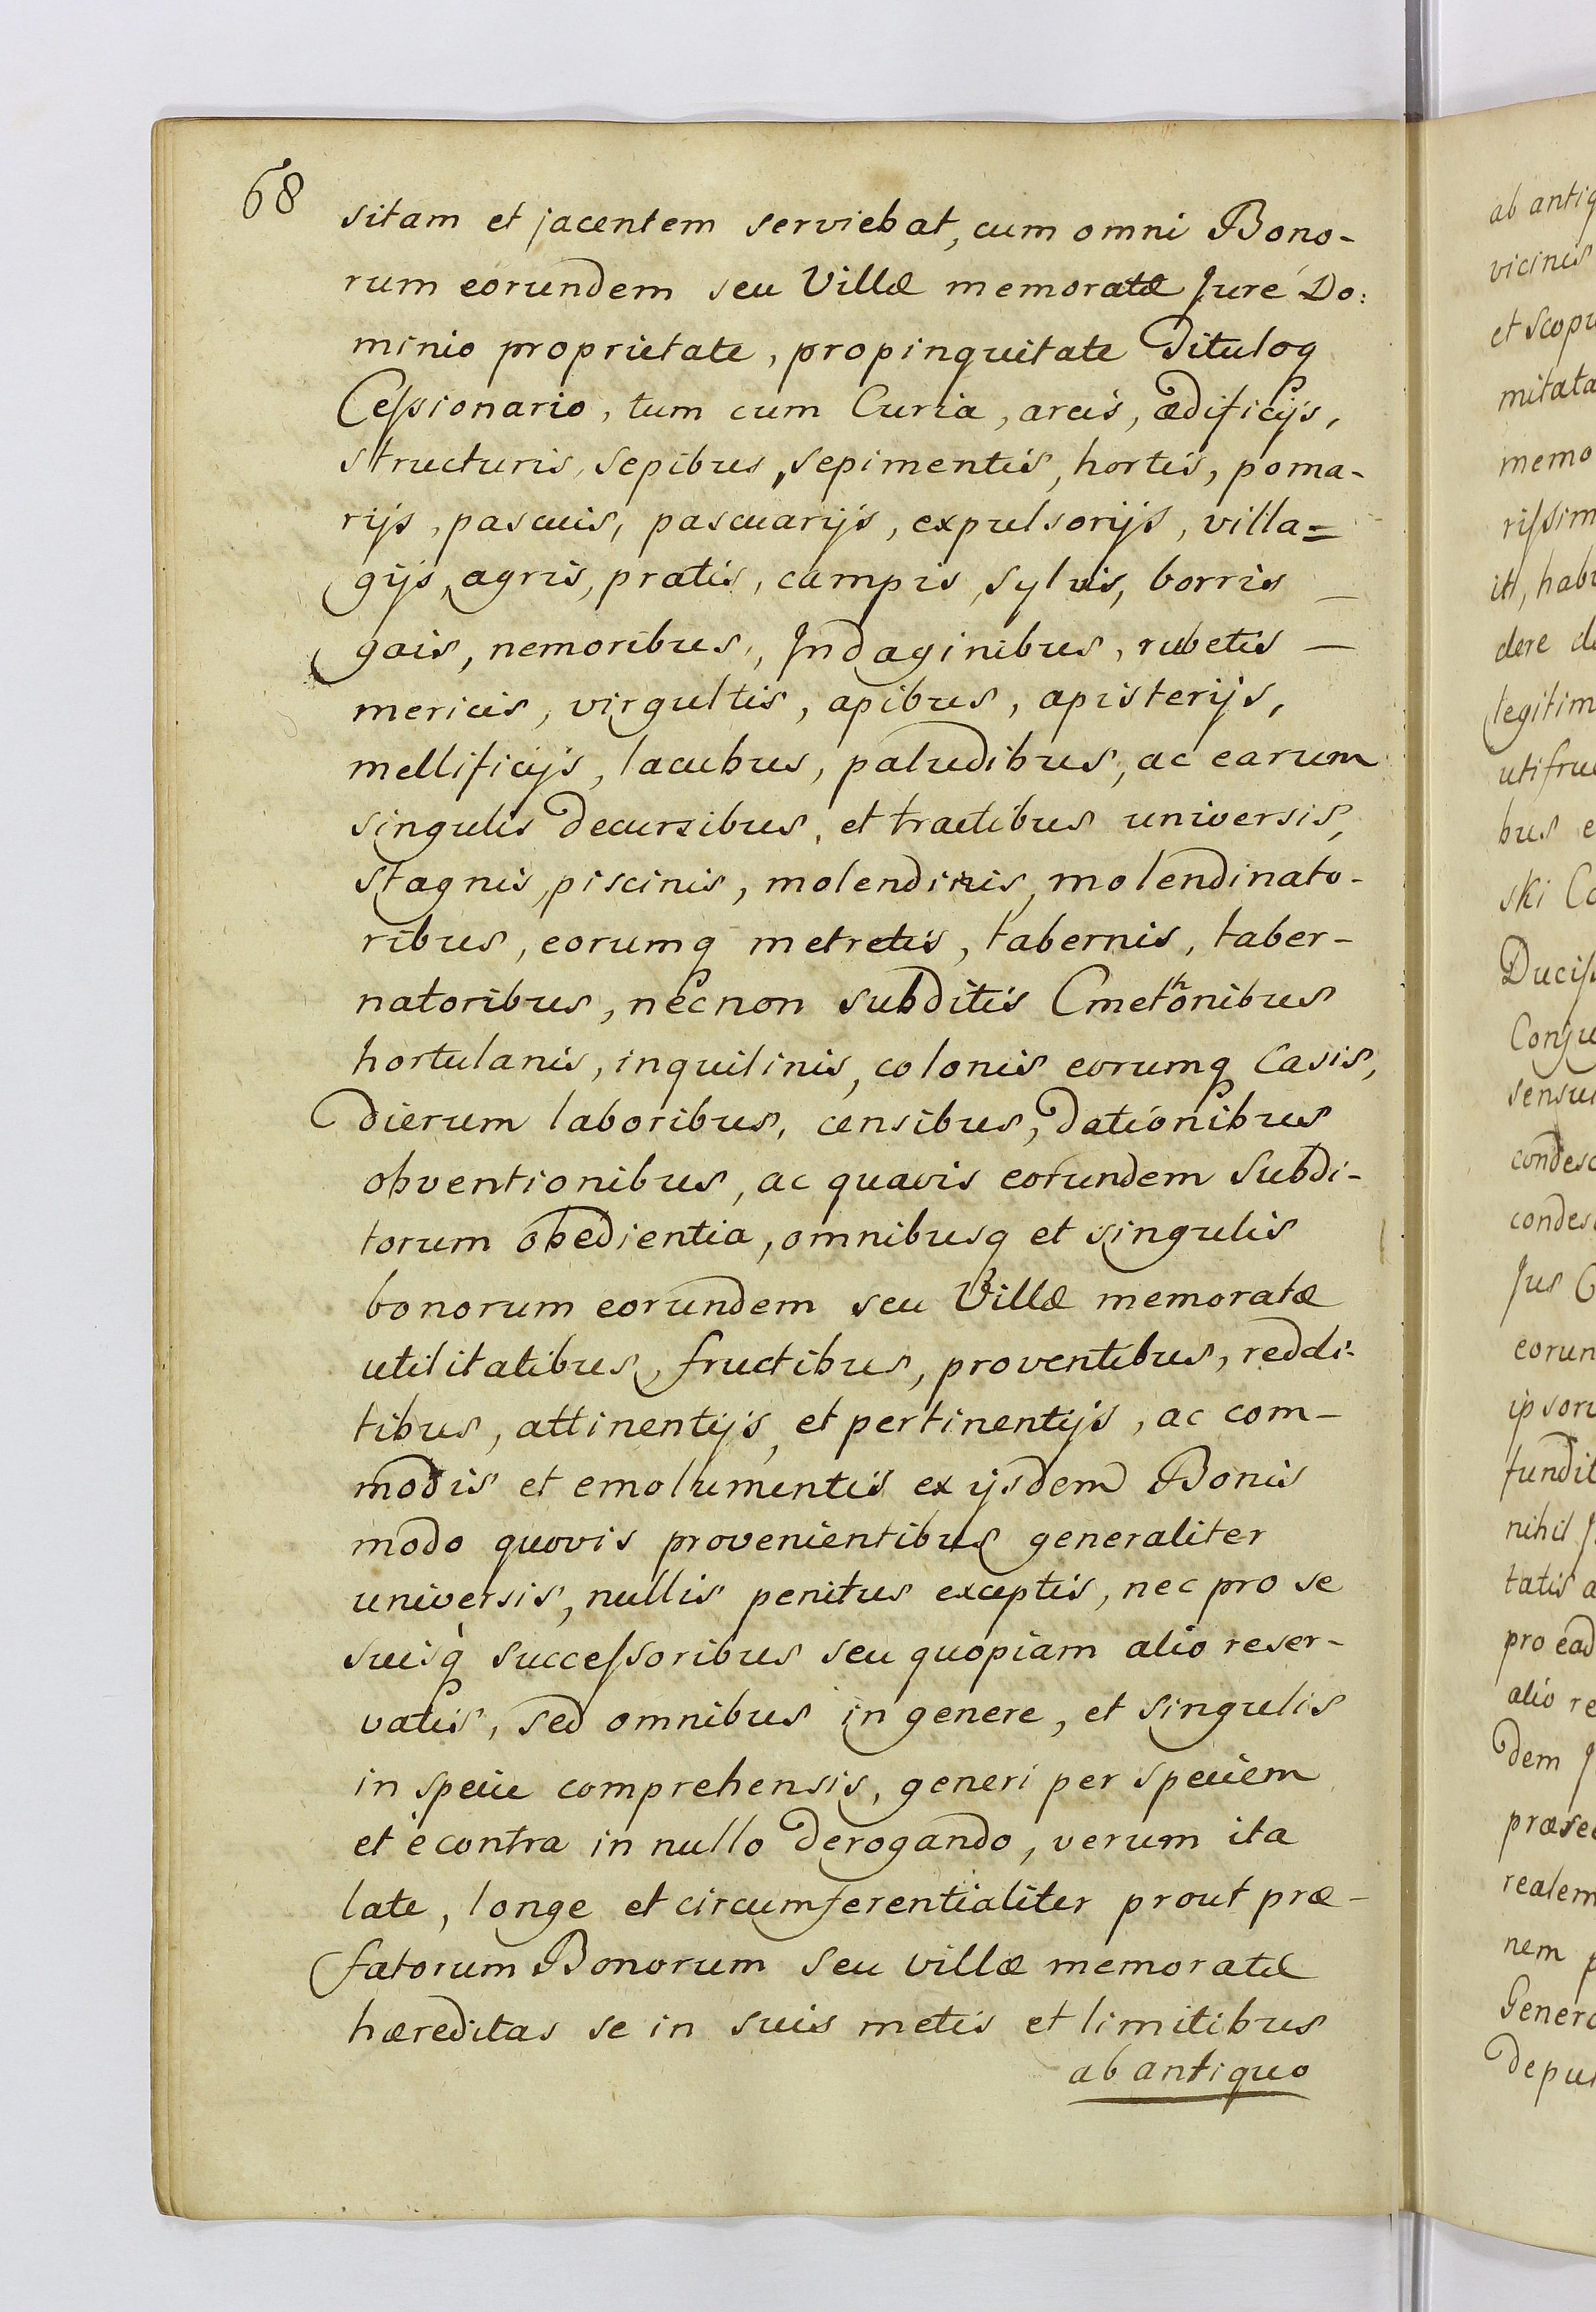 68
sitam et jacentem serviebat, cum omni Bono-
rum eorundem seu Villæ memoratæ Jure Do:
minio proprietate, propinquitate Tituloq
Ceſsionario, tum cum Curia, areis, ædificijs,
structuris, sepibus, sepimentis, hortis, poma-
rijs, pascuis, pascuarijs, expulsorijs, villa=
gijs, agris, pratis, campis, sylvis, borris —
gais, nemoribus, Indaginibus, rubetis —
mericis, virgultis, apibus, apisterijs,
mellificijs, lacubus, paludibus, ac earum
singulis decursibus, et tractibus universis,
stagnis, piscinis, molendinis, molendinato-
ribus, eorumq metretis, tabernis, taber-
natoribus, necnon subditis Cmethonibus
hortulanis, inquilinis, colonis eorumq Casis,
dierum laboribus, censibus, dationibus
obventionibus, ac quavis eorundem Subdi-
torum obedientia, omnibusq et singulis
bonorum eorundem seu Villæ memoratæ
utilitatibus, fructibus, proventibus, reddi-
tibus, attinentijs, et pertinentijs, ac com-
modis et emolumentis ex ijsdem Bonis
modo quovis provenientibus generaliter
universis, nullis penitus exceptis, nec pro se
suisq̀ succeſsoribus seu quopiam alio reser-
vatis, sed omnibus in genere, et singulis
in specie comprehensis, generi per speciem
et è contra in nullo derogando, verum ita
late, longe et circumferentialiter prout præ-
fatorum Bonorum seu villæ memoratæ
hæreditas se in suis metis et limitibus
ab antiquo
ab antiq
vicinis
et scopu
mitata
memo
riſsim
it, habe
dere
legitim
uti fru
bus e
ski Co
Duciſ
Conju
sensu
condesc
condes
Jus
eorun
ipsoru
fundit
nihil
tatis a
pro ead
alio re
dem
præse
realem
nem p
Genera
depu